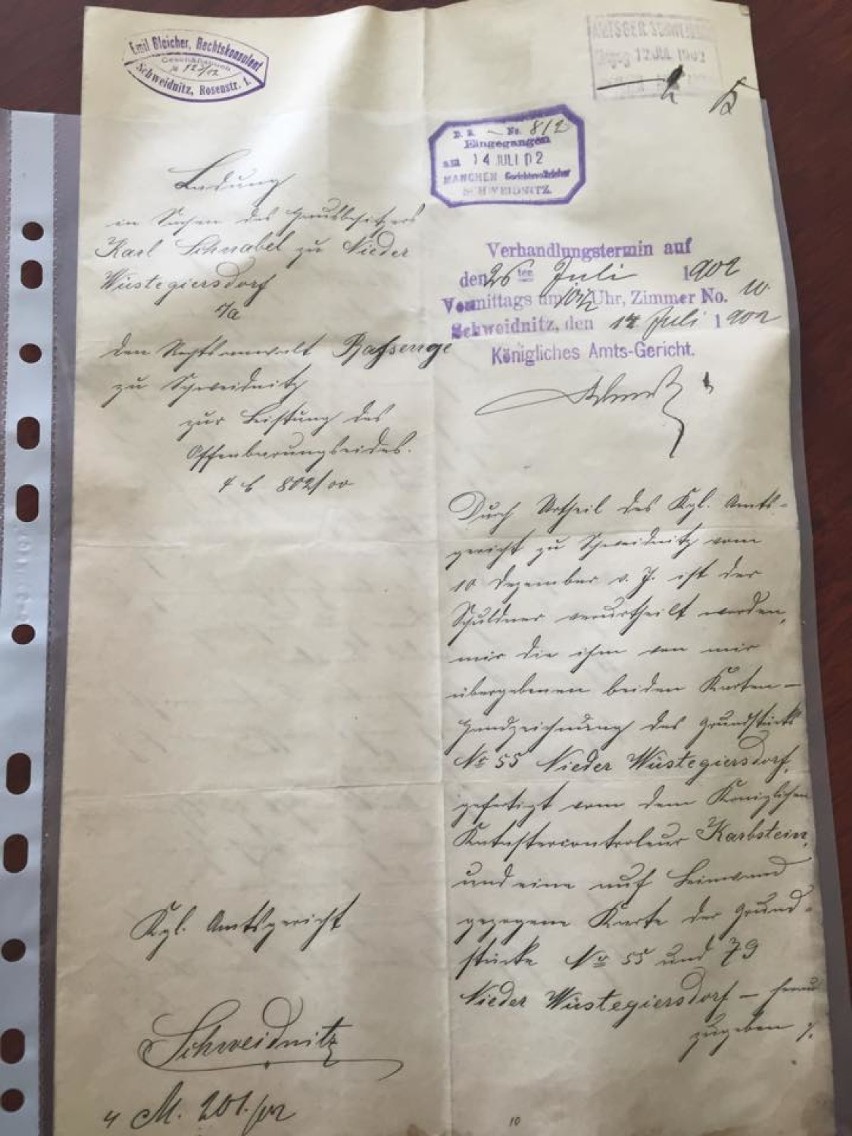 Emil Bleicher, Rechtskonsulent
Geschäftsbuch
№ 123/02
Schweidnitz, Rosenstr. 1.
AMTSGER. SCHWEIDNITZ
12 JUL. 1902
D. R. Nr. 812
Eingegangen
am 14 JULI 02
MANCHEN Gerichtsvollzieher
SCHWEIDNITZ
Ladung
in Sachen des Hausbesitzers
Karl Schnabel zu Nieder
Wüstegiersdorf
den Rechtsanwalt Bassenge
zu Schweidnitz
zur Leistung des
Offenbarungseides.
802/00
Kgl. Amtsgericht
Schweidnitz
4 M. 201./02
Verhandlungstermin auf
den 26 ten Juli 1902
Vormittags um 10½ Uhr, Zimmer No. 10
Schweidnitz, den 14 Juli 1902
Königliches Amts-Gericht.
Durch Urtheil des Kgl. Amts-
gericht zu Schweidnitz vom
10 Dezember v. J. ist der
Schuldner verurtheilt worden,
mir die ihm von mir
übergebenen beiden Karten-
Handzeichnung des Grundstücks
№ 55 Nieder Wüstegiersdorf,
gefertigt von dem Königlichen
Katastercontroleur Karbstein,
und eine auf Leinwand
gezogene Karte der Grund-
stücke № 55 und 79
Nieder Wüstegiersdorf – heraus
zugeben
10